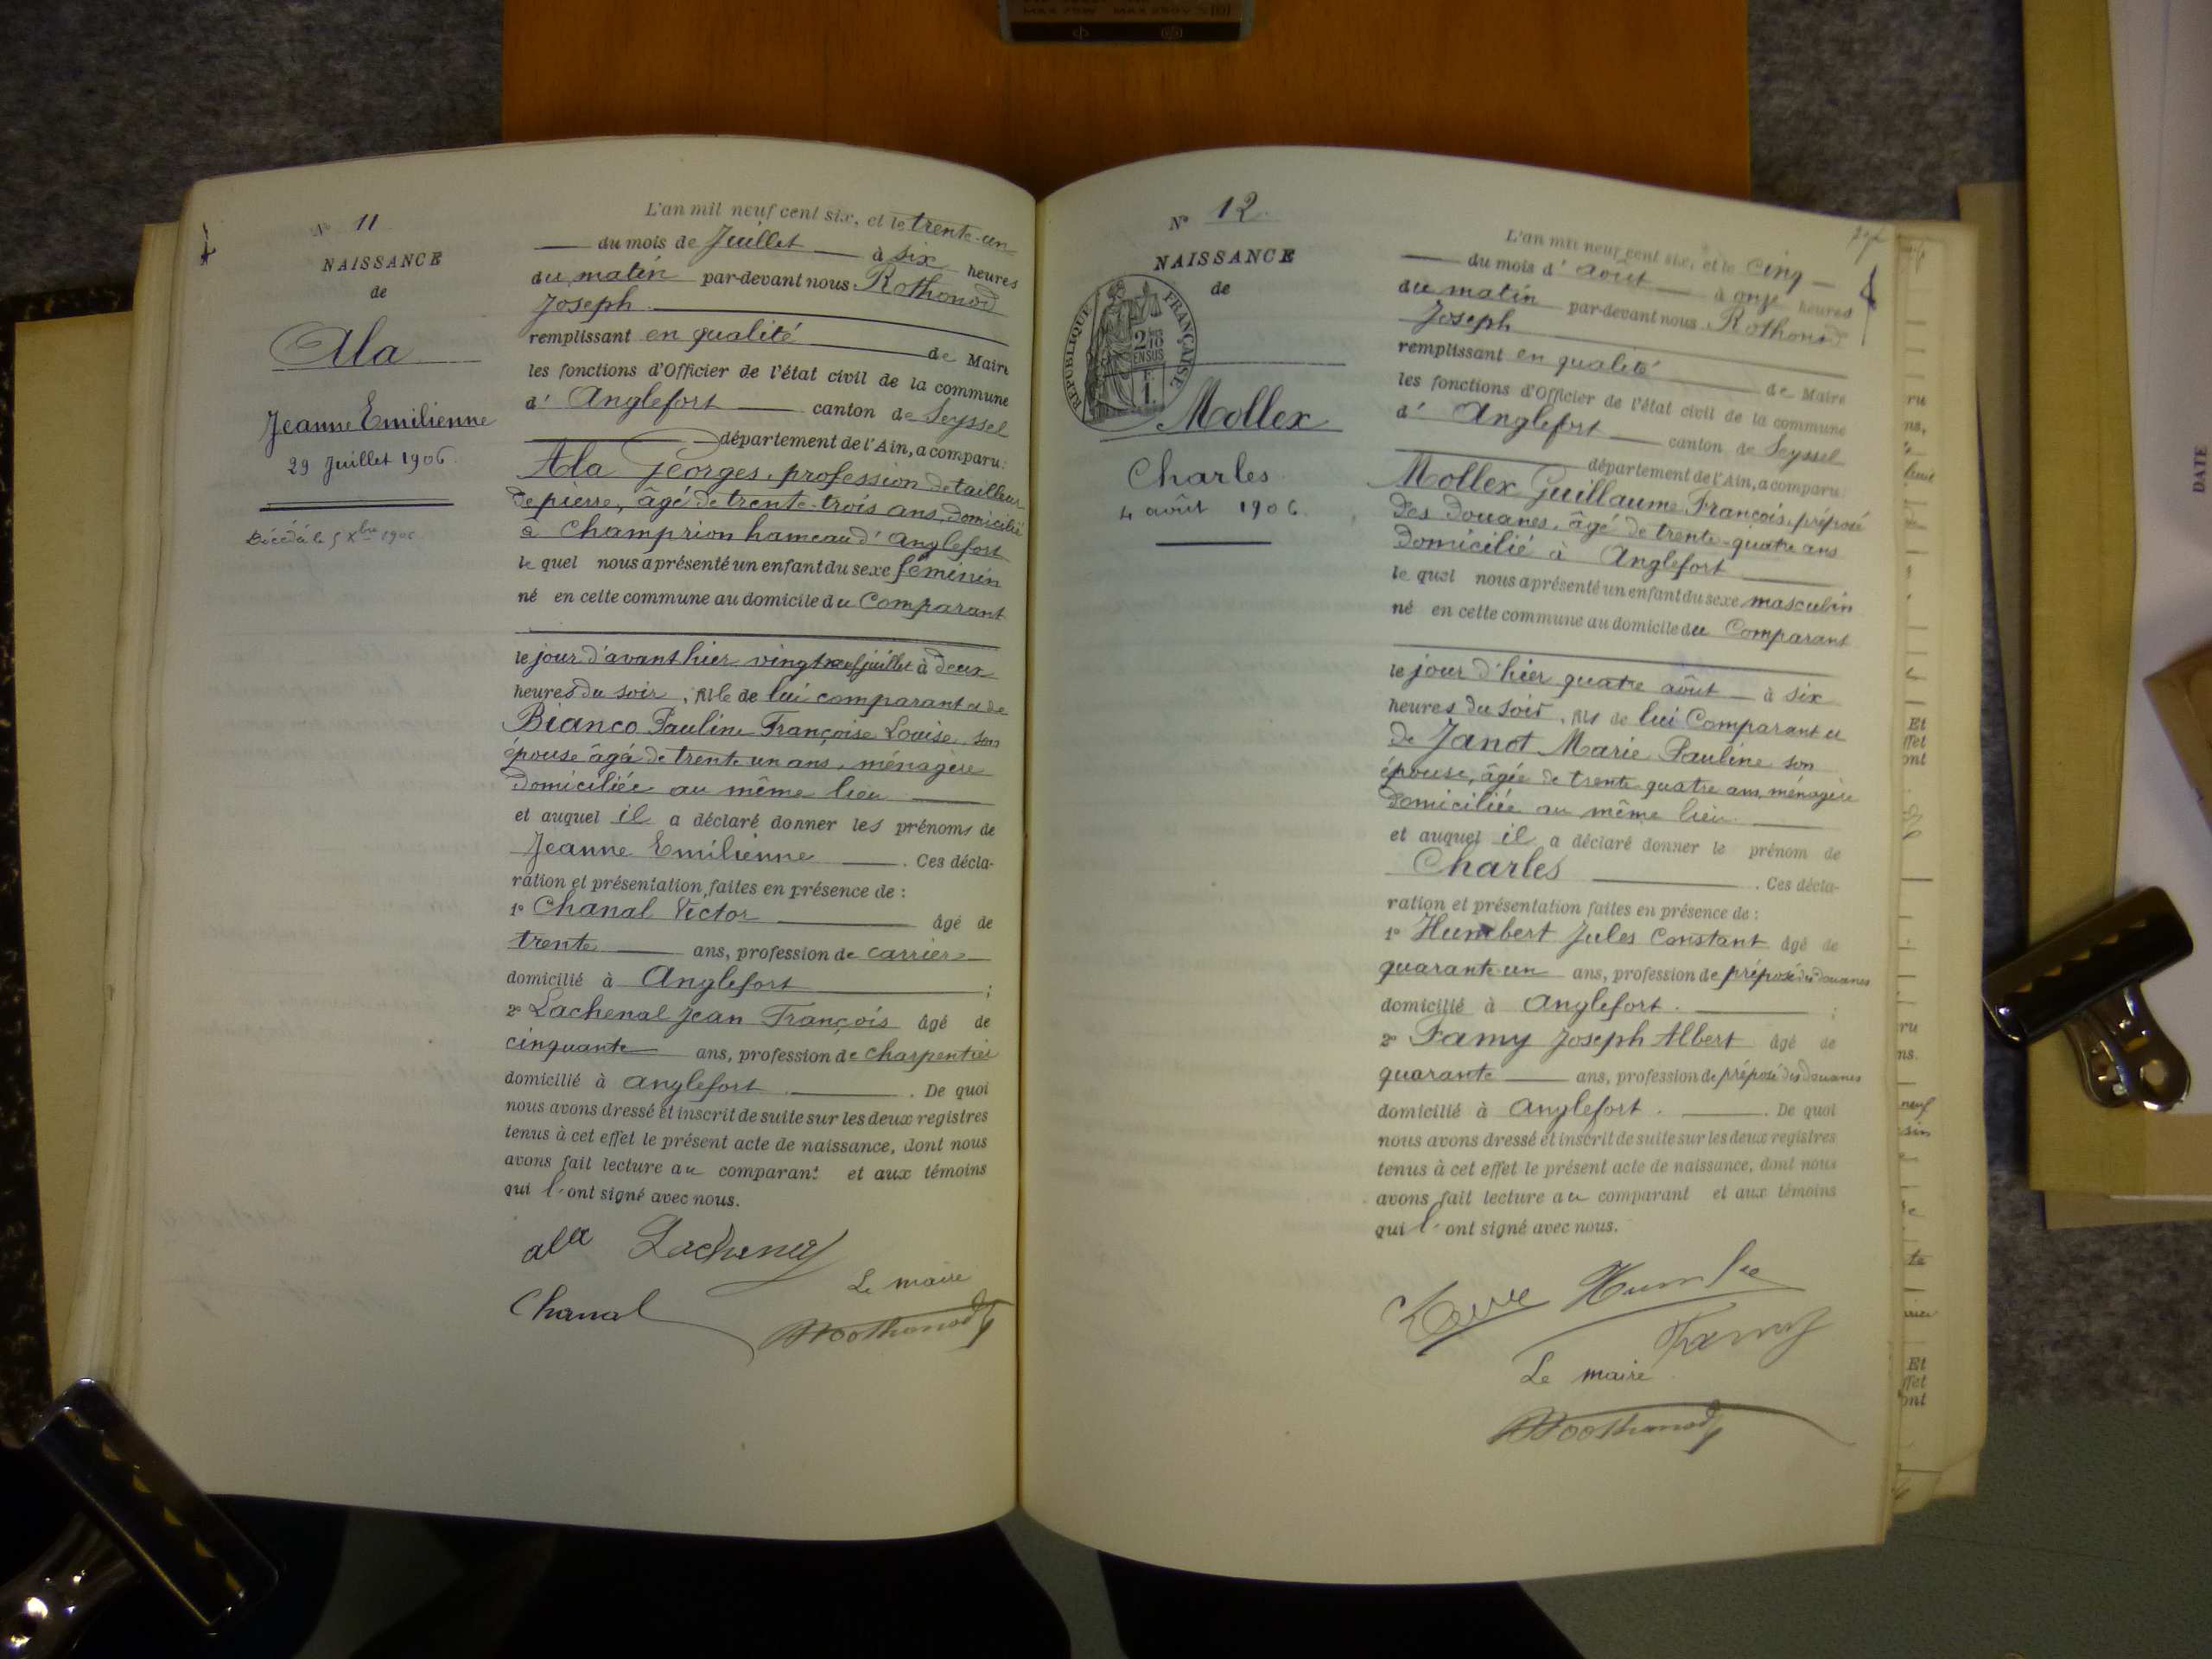 N° 11
NAISSANCE
de
Ala
Jeanne Emilienne
29 Juillet 1906
Décédée le 5 Xbre 1906
L'an mil neuf cent six, et le trente-un
du mois de Juillet à six heures
du matin par-devant nous Rothonod
Joseph
remplissant en qualité de Maire
les fonctions d'Officier de l'état civil de la commune
d' Anglefort canton de Seyssel
département de l'Ain, a comparu:
Ala Georges, profession de tailleur
de pierre, âgé de trente-trois ans, domicilié
à Champrion hameau d'Anglefort
le quel nous a présenté un enfant du sexe féminin
né en cette commune au domicile du Comparant
le jour d'avant hier vingt neuf juillet à deux
heures du soir, fille de lui comparant et de
Bianco Pauline Françoise Louise, son
épouse âgée de trente un ans, ménagère
domiciliée au même lieu
et auquel il a déclaré donner les prénoms de
Jeanne Emilienne . Ces décla-
ration et présentation faites en présence de :
1° Chanal Victor âgé de
trente ans, profession de carrier
domicilié à Anglefort ;
2° Lachenal Jean François âgé de
cinquante ans, profession de charpentier
domicilié à Anglefort . De quoi
nous avons dressé et inscrit de suite sur les deux registres
tenus à cet effet le présent acte de naissance, dont nous
avons fait lecture au comparant et aux témoins
qui l'ont signé avec nous.
ala Lachenal
Le maire
Chanal
Rothonod
N° 12
NAISSANCE
de
RÉPUBLIQUE FRANÇAISE
2/10
EN SUS
F.
1.
Mollex
Charles
4 août 1906
L'an mil neuf cent six, et le cinq
du mois d' août à onze heures
du matin par-devant nous Rothonod
Joseph
remplissant en qualité de Maire
les fonctions d'Officier de l'état civil de la commune
d' Anglefort canton de Seyssel
département de l'Ain, a comparu:
Mollex Guillaume François, préposé
des douanes, âgé de trente-quatre ans
domicilié à Anglefort
le quel nous a présenté un enfant du sexe masculin
né en cette commune au domicile du Comparant
le jour d'hier quatre août à six
heures du soir, fils de lui Comparant et
de Janot Marie Pauline son
épouse, âgée de trente quatre ans, ménagère
domiciliée au même lieu
et auquel il a déclaré donner le prénom de
Charles . Ces décla-
ration et présentation faites en présence de :
1° Humbert Jules Constant âgé de
quarante-un ans, profession de préposé des douanes
domicilié à Anglefort. ;
2° Famy Joseph Albert âgé de
quarante ans, profession de préposé des douanes
domicilié à Anglefort . De quoi
nous avons dressé et inscrit de suite sur les deux registres
tenus à cet effet le présent acte de naissance, dont nous
avons fait lecture au comparant et aux témoins
qui l'ont signé avec nous.
Famy
Le maire
Rothonod
DATE